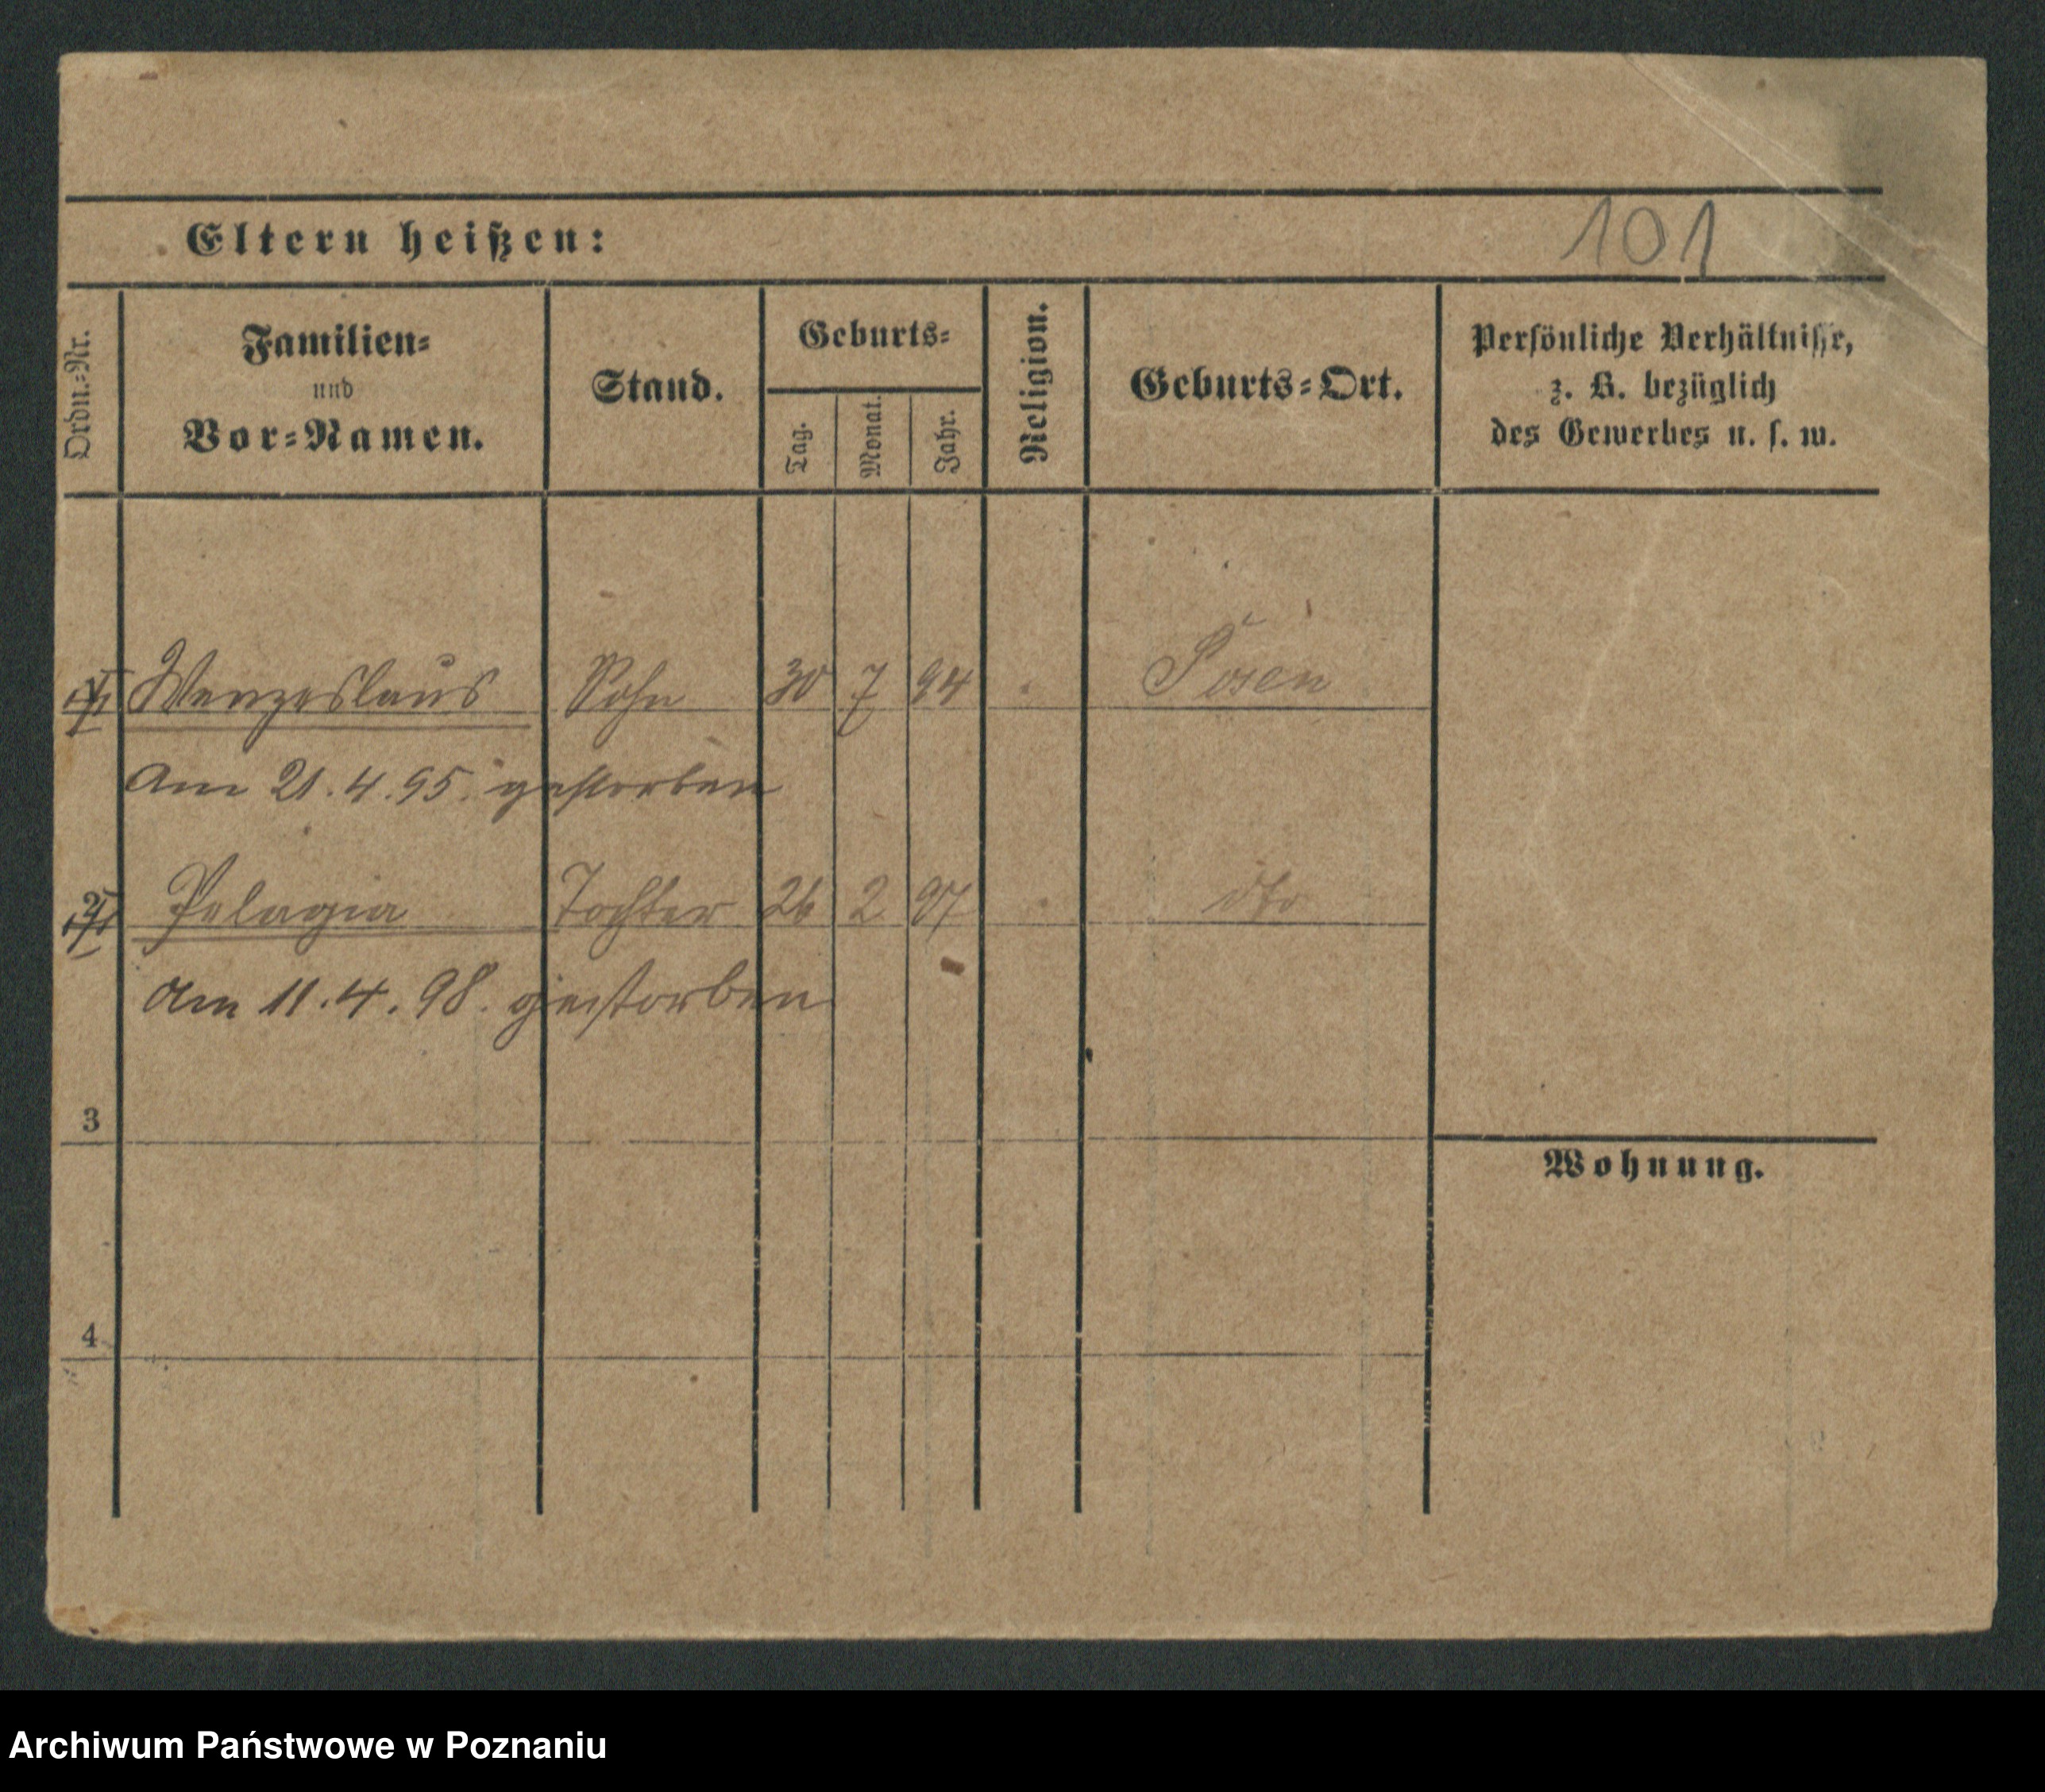 101
Eltern heißen:
Ordn.-Nr.
Familien-
und
Vor-Namen.
Stand.
Geburts-
Tag.
Monat.
Jahr.
Religion.
Geburts-Ort.
Persönliche Verhältnisse,
z. B. bezüglich
des Gewerbes u. s. w.
Wenzeslaus Sohn 30 7 94 Posen
Am 21.4.95. gestorben
2 Pelagia Tochter 26 2 97 dto
Am 11.4.98. gestorben
3
Wohnung.
4
Archiwum Państwowe w Poznaniu